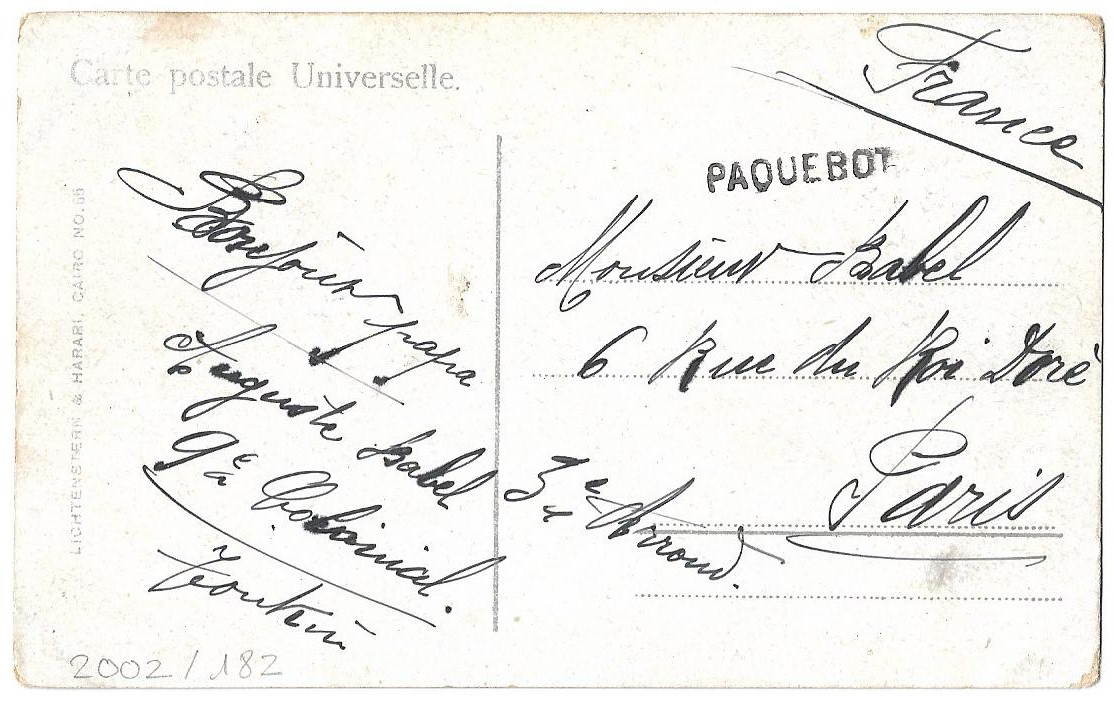 Carte postale Universelle.
France
PAQUEBOT
LICHTENSTERN & HARARI, CAIRO NO. 65
Bonjour papa
Auguste Babel
9e Colonial.
Tonkin
Monsieur Babel
6 Rue du Roi Doré
Paris
3e Arrond.
2002/182